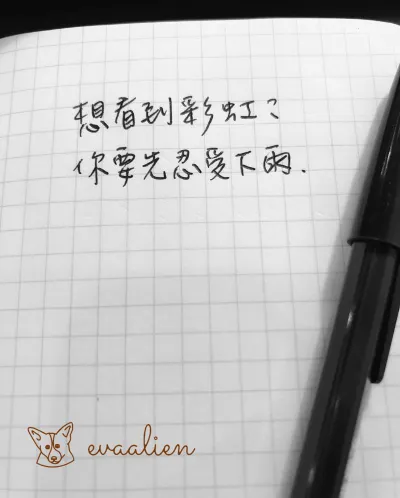 想看到彩虹?
你要先忍受下雨.
evaalien